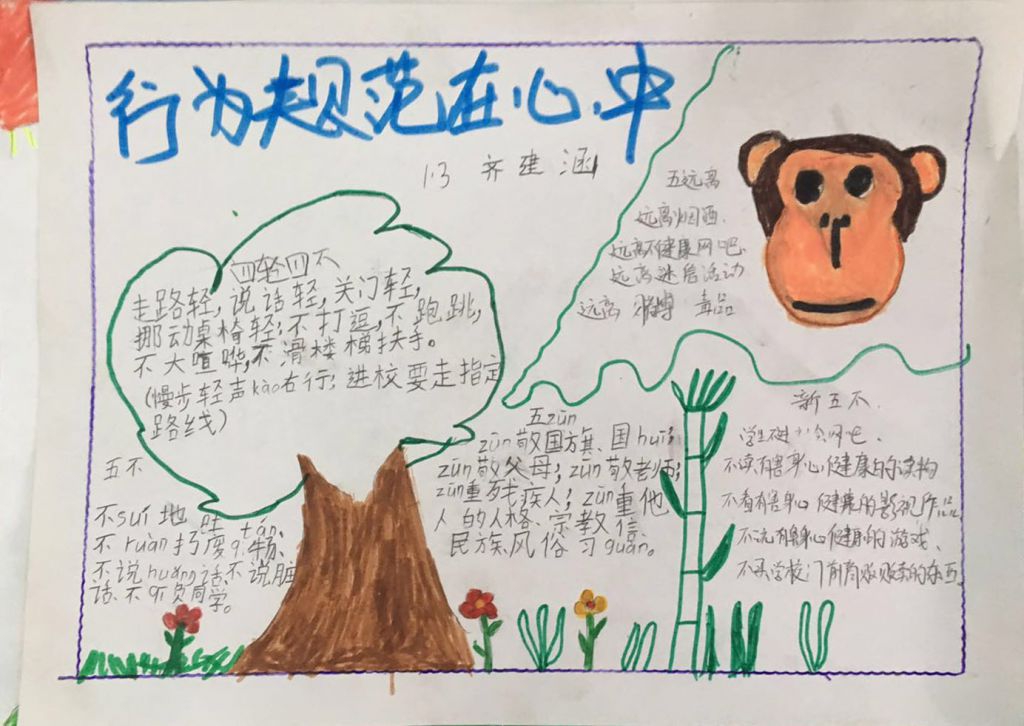 行为规范在心中
1.3 齐建涵
四轻四不
走路轻,说话轻,关门轻,
挪动桌椅轻;不打逗,不跑跳,
不大喧哗,不滑楼梯扶手。
(慢步轻声kào右行;进校要走指定
路线)
五不
不suí地吐tán、
不ruàn扔废q.物、
不说huǎng话、不说脏
话、不qī负同学。
五zūn
zūn敬国旗、国huī;
zūn敬父母;zūn敬老师;
zūn重残疾人;zūn重他
人的人格、宗教信
民族风俗习guàn。
五远离
远离烟酒、
远离不健康网吧、
远离迷信活动
远离 毒品
新五不
不读有害身心健康的读物
不看有害身心健康的影视作品
不玩有害身心健康的游戏、
不买学校门前商贩贩卖的东西